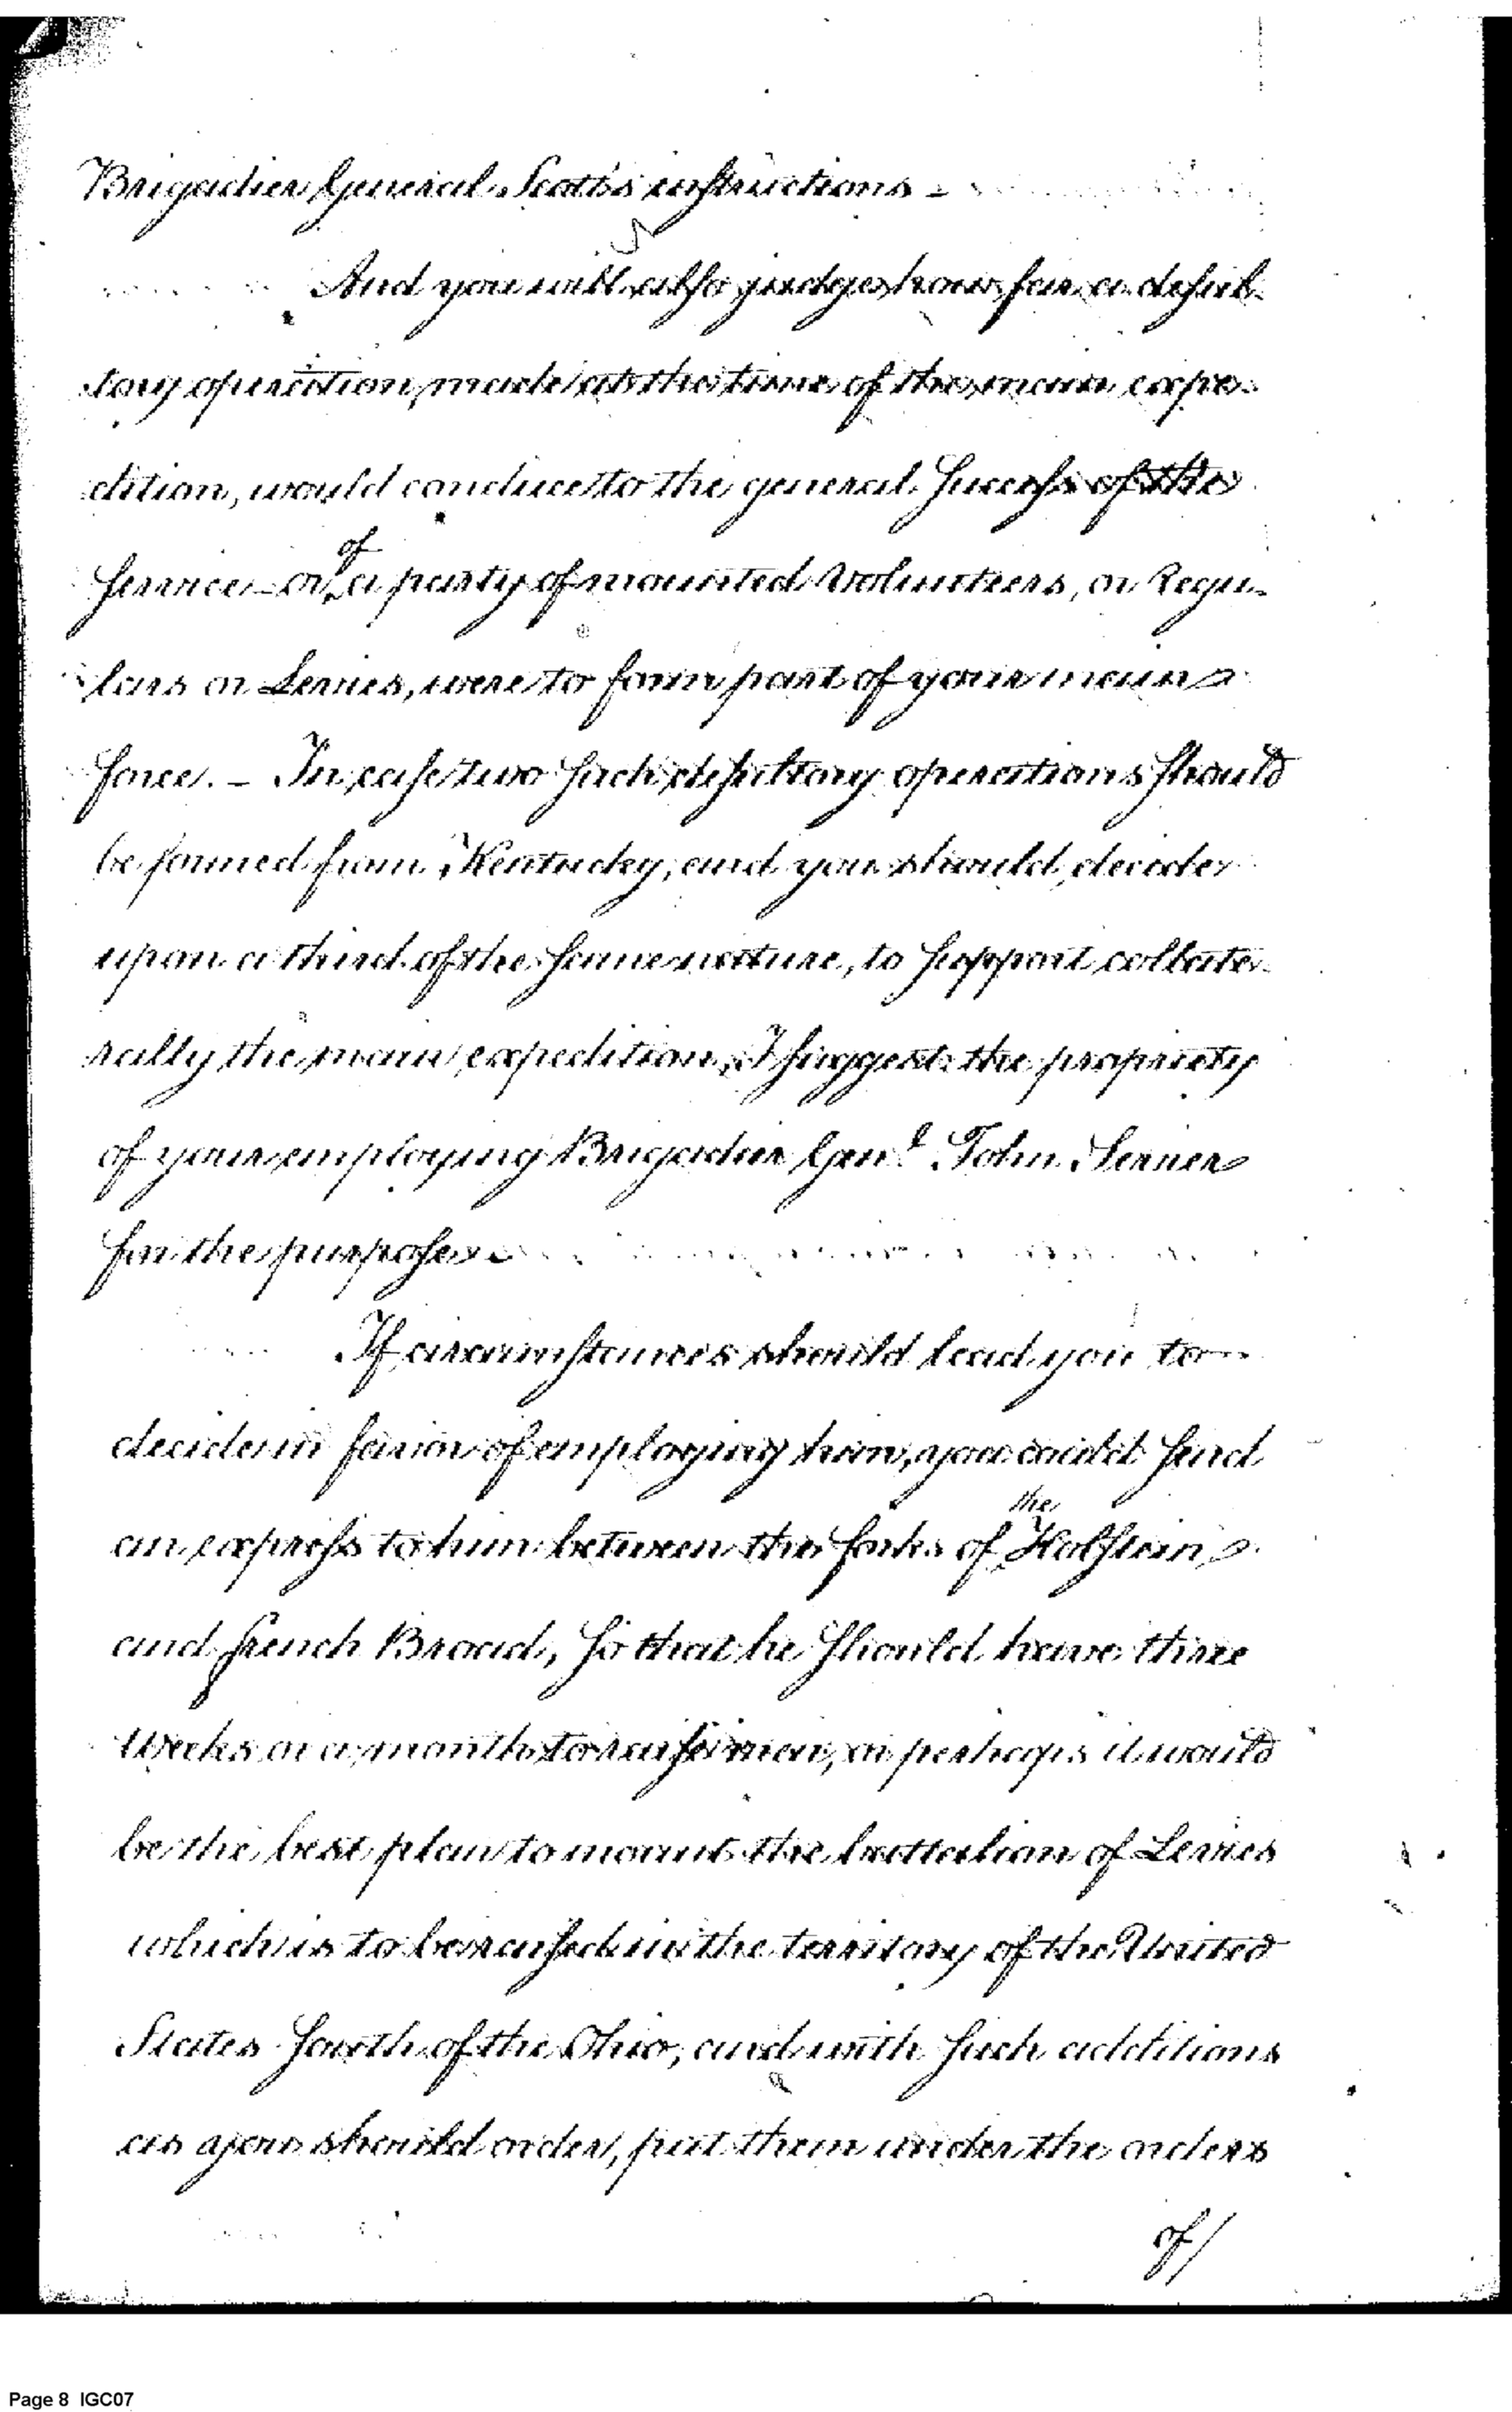 Brigadier General Scott's instructions -
And you will also judge, how far a desul-
tory operation, made at the time of the main expe-
dition, would conduce to the general success of the
service - or if a party of mounted Volunteers, or Regu-
lars or Levies, were to form part of your main
force. - In case two such desultory operations should
be formed from Kentucky, and you should, decide
upon a third of the same nature, to support collate-
rally the main expedition, I suggest the propriety
of your employing Brigadier Genl. John Sevier
for the purpose
If circumstances should lead you to
decide in favor of employing him, you could send
an express to him between the forks of the Holstein
and French Broad, so that he should have three
weeks or a month to raise men, or perhaps it would
be the best plan to mount the battalion of Levies
which is to be raised in the territory of the United
States South of the Ohio, and with such additions
as you should order, put them under the orders
of/
Page 8 IGC07